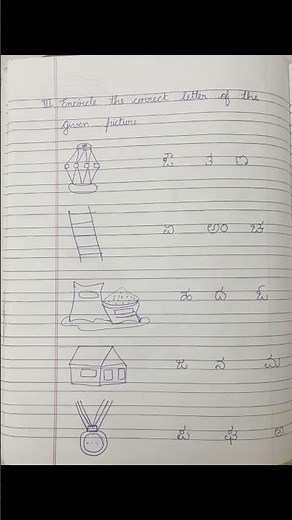 III Encircle the correct letter of the
given picture
ಔ ತ
ಏ ಅಂ ಚ
ಹ ದ ಓ
ಜ ನ ಮ
ಪ ಘ